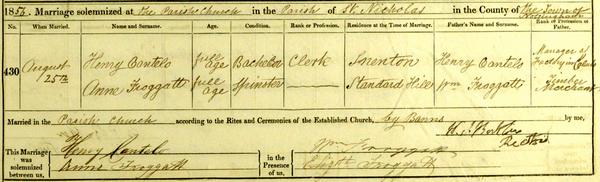 1856. Marriage solemnized at the Parish Church in the Parish of St. Nicholas in the County of the Town of Nottingham
No. When Married. Name and Surname. Age. Condition. Rank or Profession. Residence at the Time of Marriage. Father's Name and Surname. Rank or Profession of Father.
430 August 25th Henry Cantelo full age Bachelor Clerk Snenton Henry Cantelo Manager of
Anne Froggatt full age Spinster Standard Hill Wm Froggatt Timber Merchant
Married in the Parish Church according to the Rites and Ceremonies of the Established Church, by Banns by me,
This Marriage was solemnized between us, Henry Cantelo Anne Froggatt in the Presence of us, Wm Froggatt Elizth Froggatt
Rector